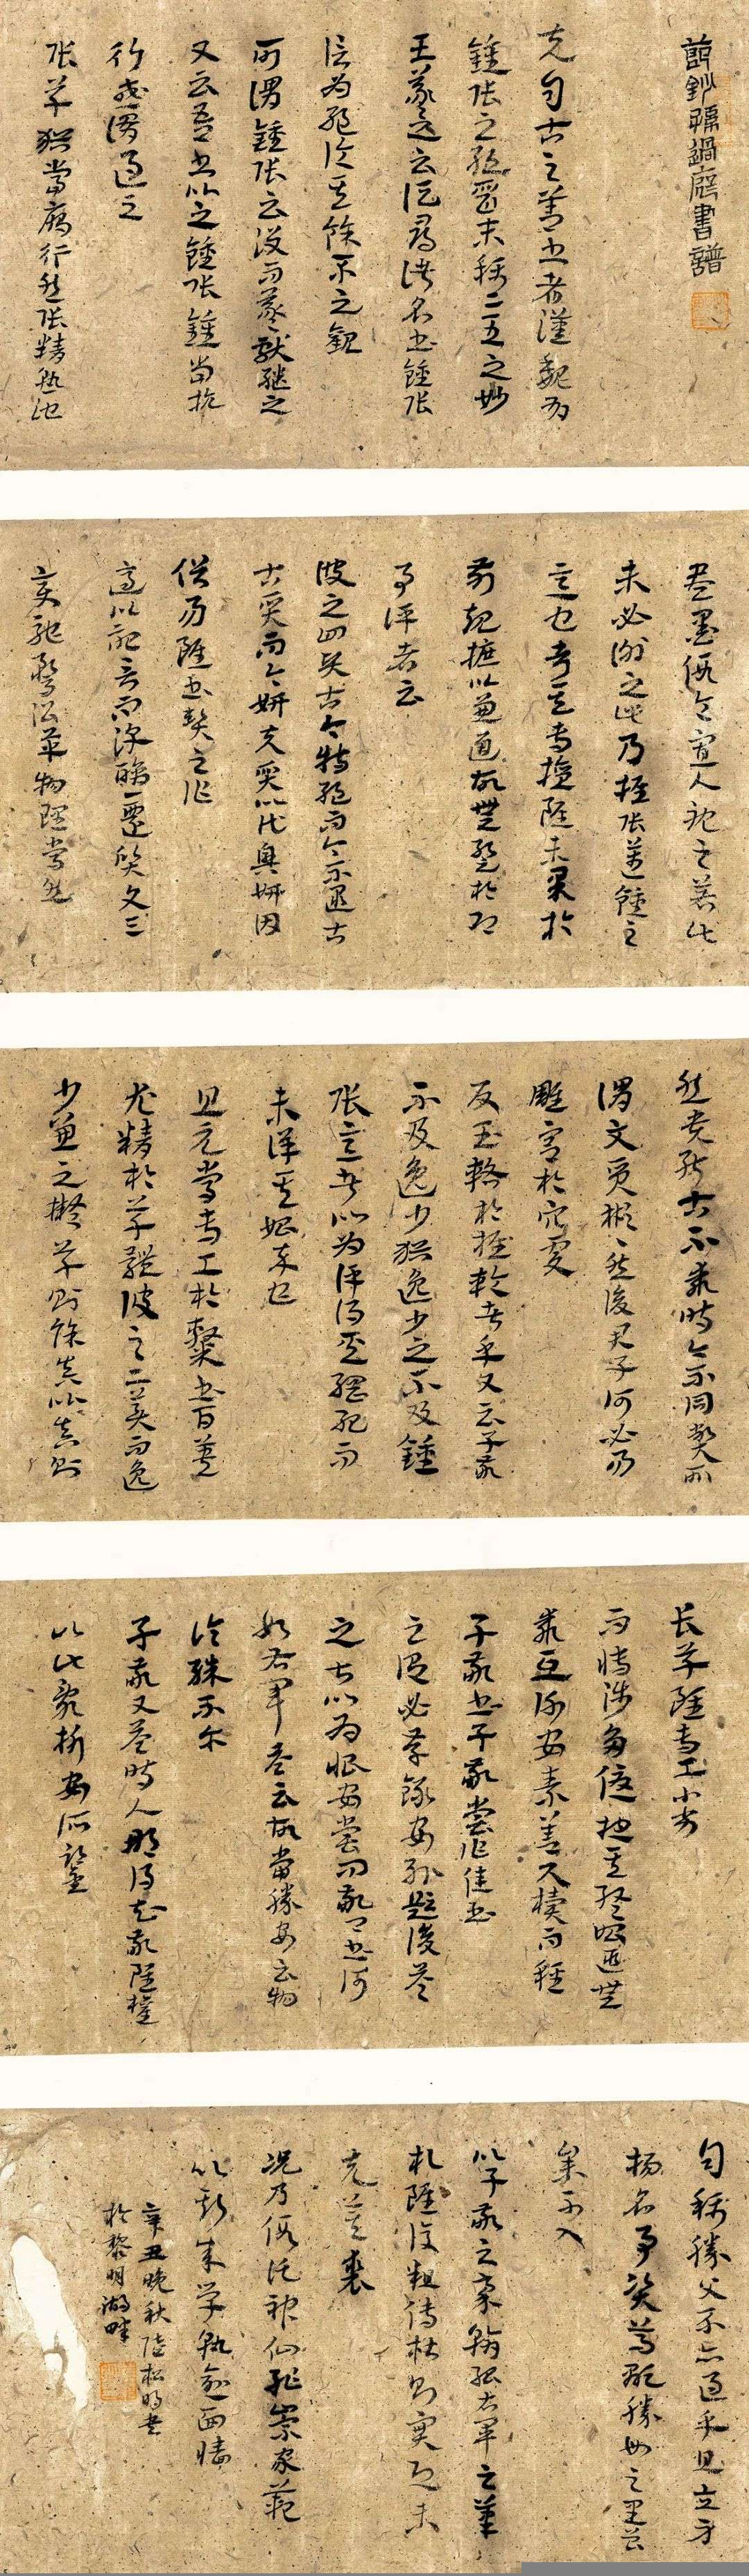 節鈔孫過庭書譜
夫自古之善書者漢魏有
鍾張之絕晉末稱二王之妙
王羲之云頃尋諸名書鍾張
信為絕倫其餘不足觀
可謂鍾張云沒而羲獻繼之
又云吾書比之鍾張鍾當抗
行或謂過之
張草猶當雁行然張精熟池
水盡墨假令寡人耽之若此
未必謝之此乃推張邁鍾之
意也考其專擅雖未果於
前規摭以兼通故無慙於即
事評者云
彼之四賢古今特絕而今不逮古
古質而今妍夫質以代興妍因
俗易雖書契之作
適以記言而淳醨一遷質文三
變馳騖沿革物理常然
然貴能古不乖時今不同弊所
謂文質彬彬然後君子何必易
雕宮於穴處
反玉輅於椎輪者乎又云子敬
不及逸少猶逸少之不及鍾
張意者以為評得其綱紀而
未詳其始卒也
且元常專工於隸書百英
尤精於草體彼之二美而逸
少兼之擬草則餘真比真則
長草雖專工小劣
而博涉多優揔其終始匪無
乖互謝安素善尺牘而輕
子敬書子敬嘗作佳書
與之謂必存錄安輒題後答
之甚以為恨安嘗問敬卿書何
如右軍答云故當勝安云物
論殊不爾
子敬又答時人那得知敬雖權
以此辭折安所鑒
自稱勝父不亦過乎且立身
揚名事資尊顯勝母之里曾
參不入
以子敬之豪翰紹右軍之筆
札雖復粗傳楷則實恐未
克箕裘
況乃假託神仙恥崇家範
以斯成學孰愈面牆
辛丑晚秋陸松明書
於黎明湖畔